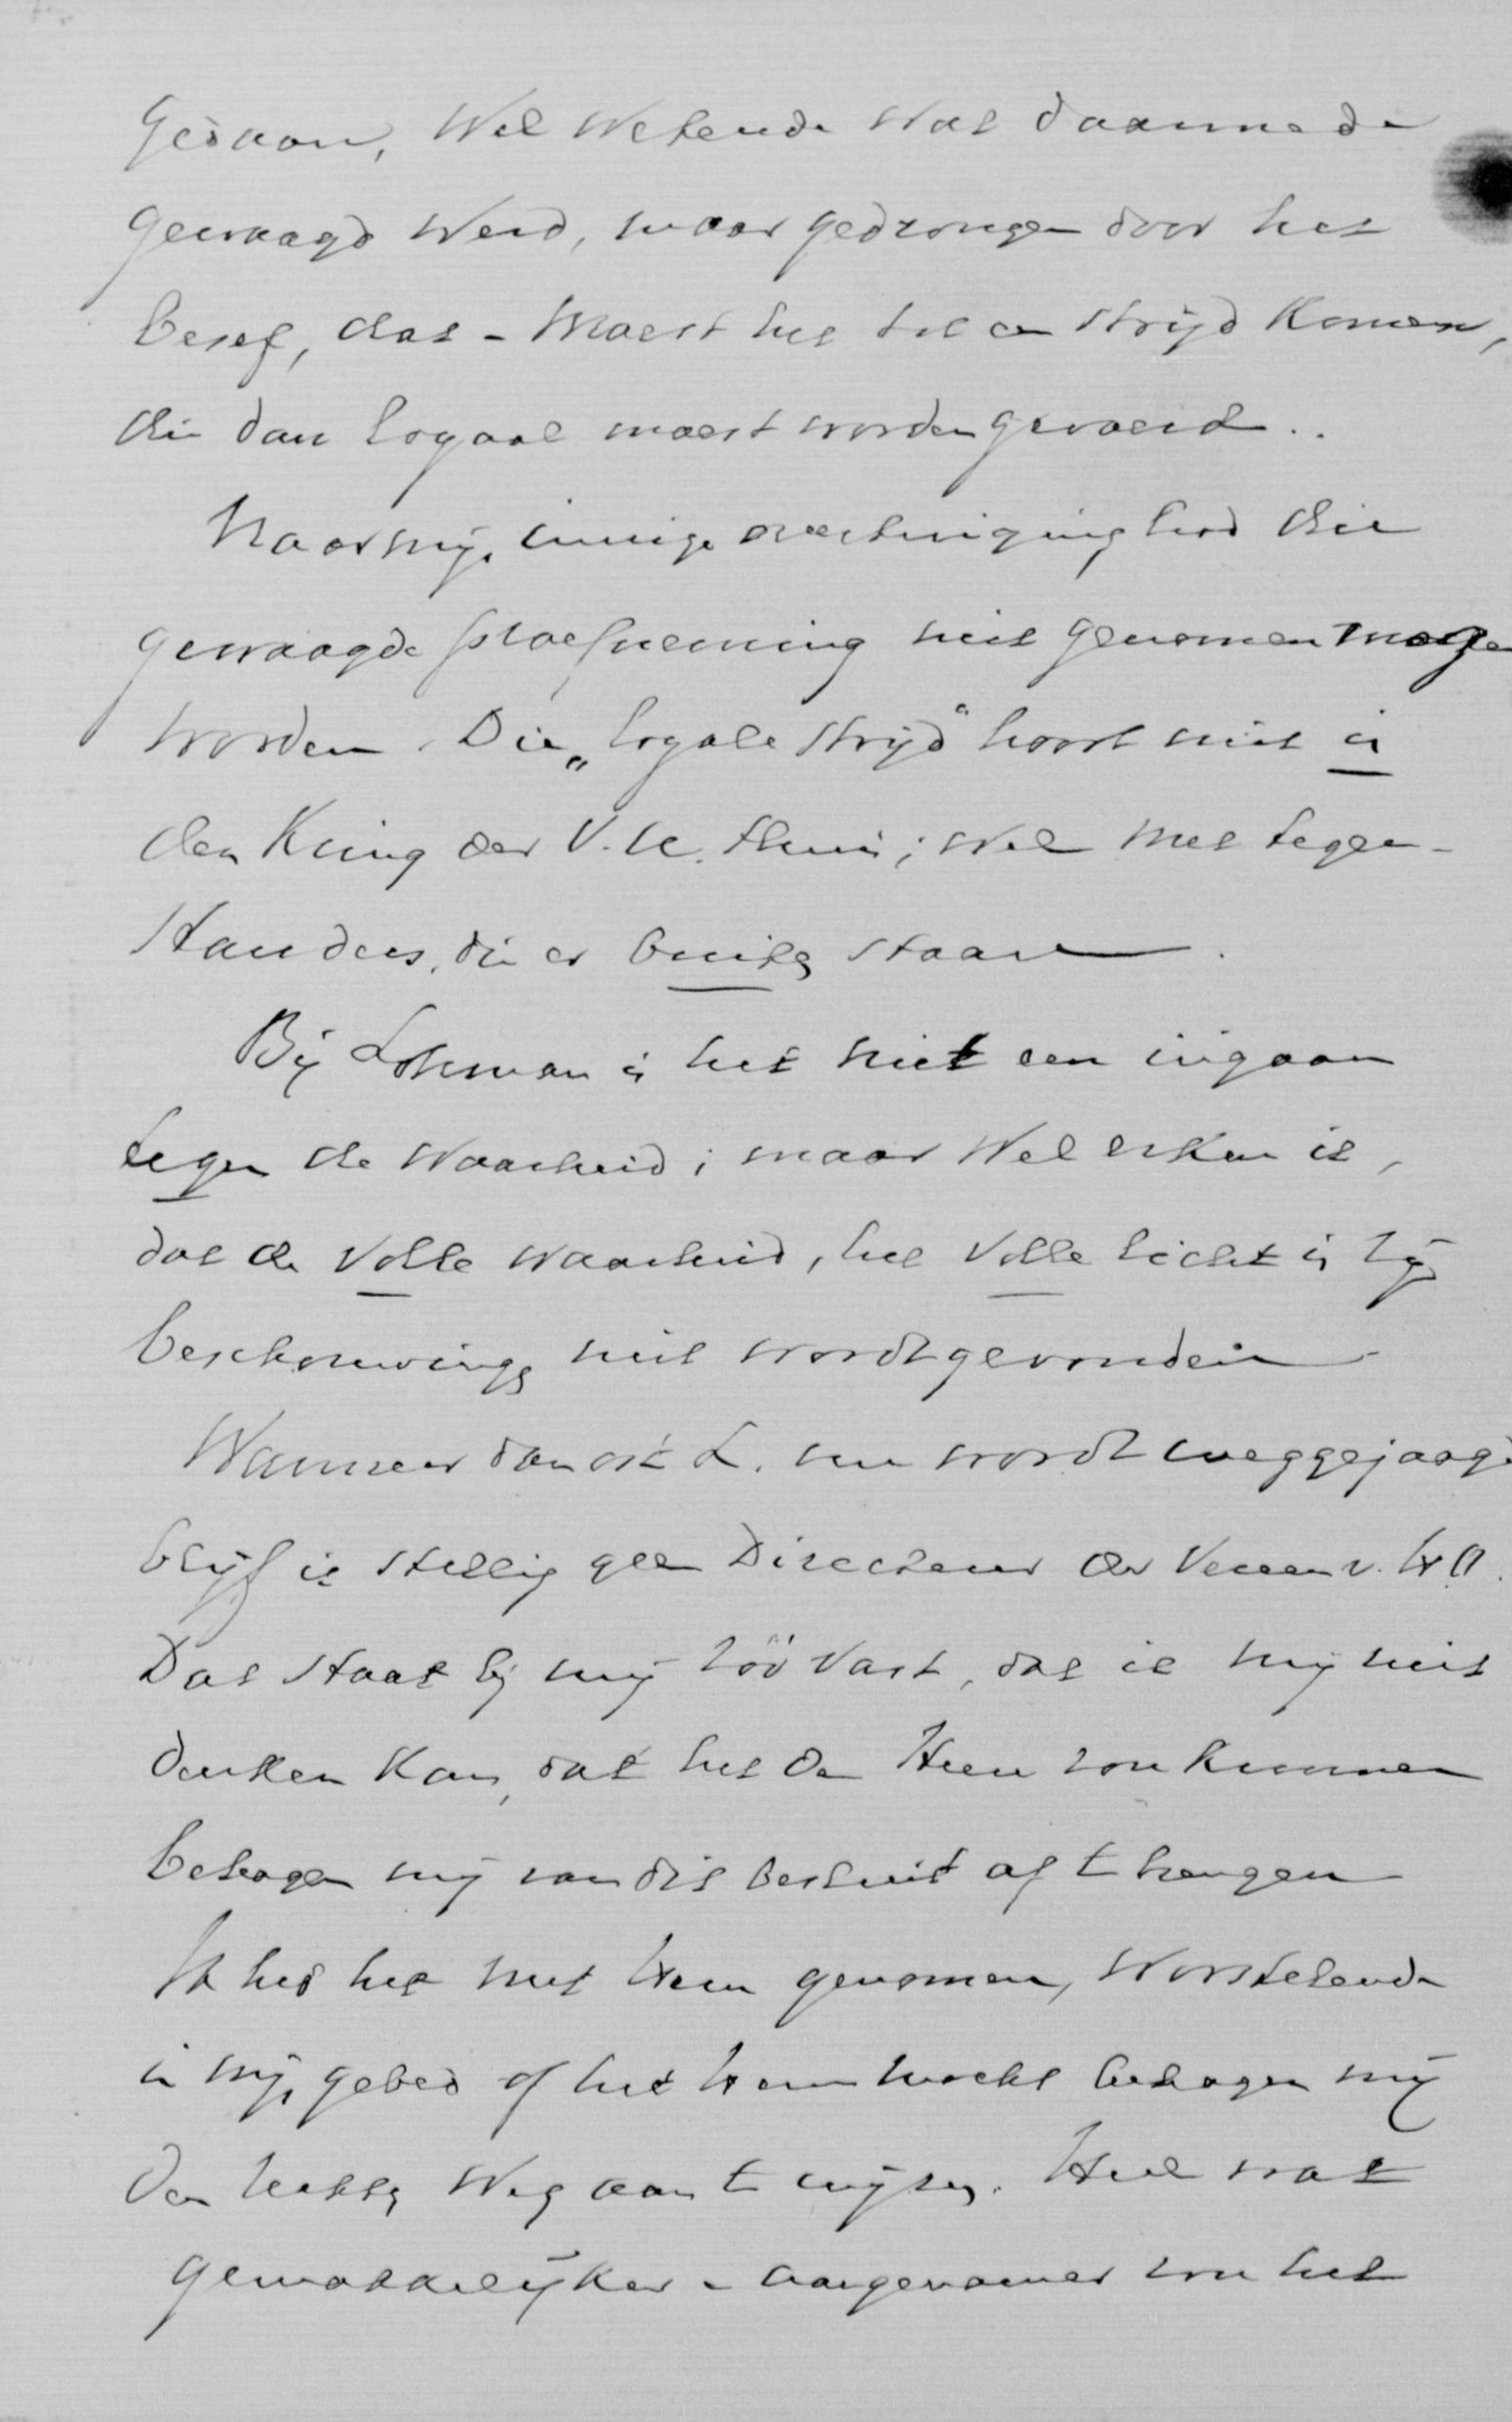 gedaan, wel wetende wat daarmede
gewaagd werd, maar gedrongen door het
besef, dat - moest het tot een strijd komen,
die dan loyaal moest worden gevoerd..
Naar mijn innige overtuiging had die
gewaagde proefneming niet genomen mogen
worden. Die „loyale strijd" hoort niet in
den Kring der V.U. thuis; wel met tegen-
standers, die er buiten staan.
Bij Lohman is het niet een ingaan
tegen de Waarheid; maar wel erken ik,
dat de volle waarheid, het volle licht in zijn
beschouwingen niet wordt gevonden.
Wanneer dan ook L. nu wordt weggejaagd
blijf ik stellig geen Directeur der Vereen v. H.O.
Dat staat bij mij zóó vast, dat ik mij niet
denken kan, dat het den Heere zou kunnen
behagen mij van dit besluit af te brengen
Ik heb het met Hem genomen, worstelende
in mijn gebed of het Hem mocht behagen mij
den rechten weg aan te wijzen. Heel wat
gemakkelijker - aangenamer zou het